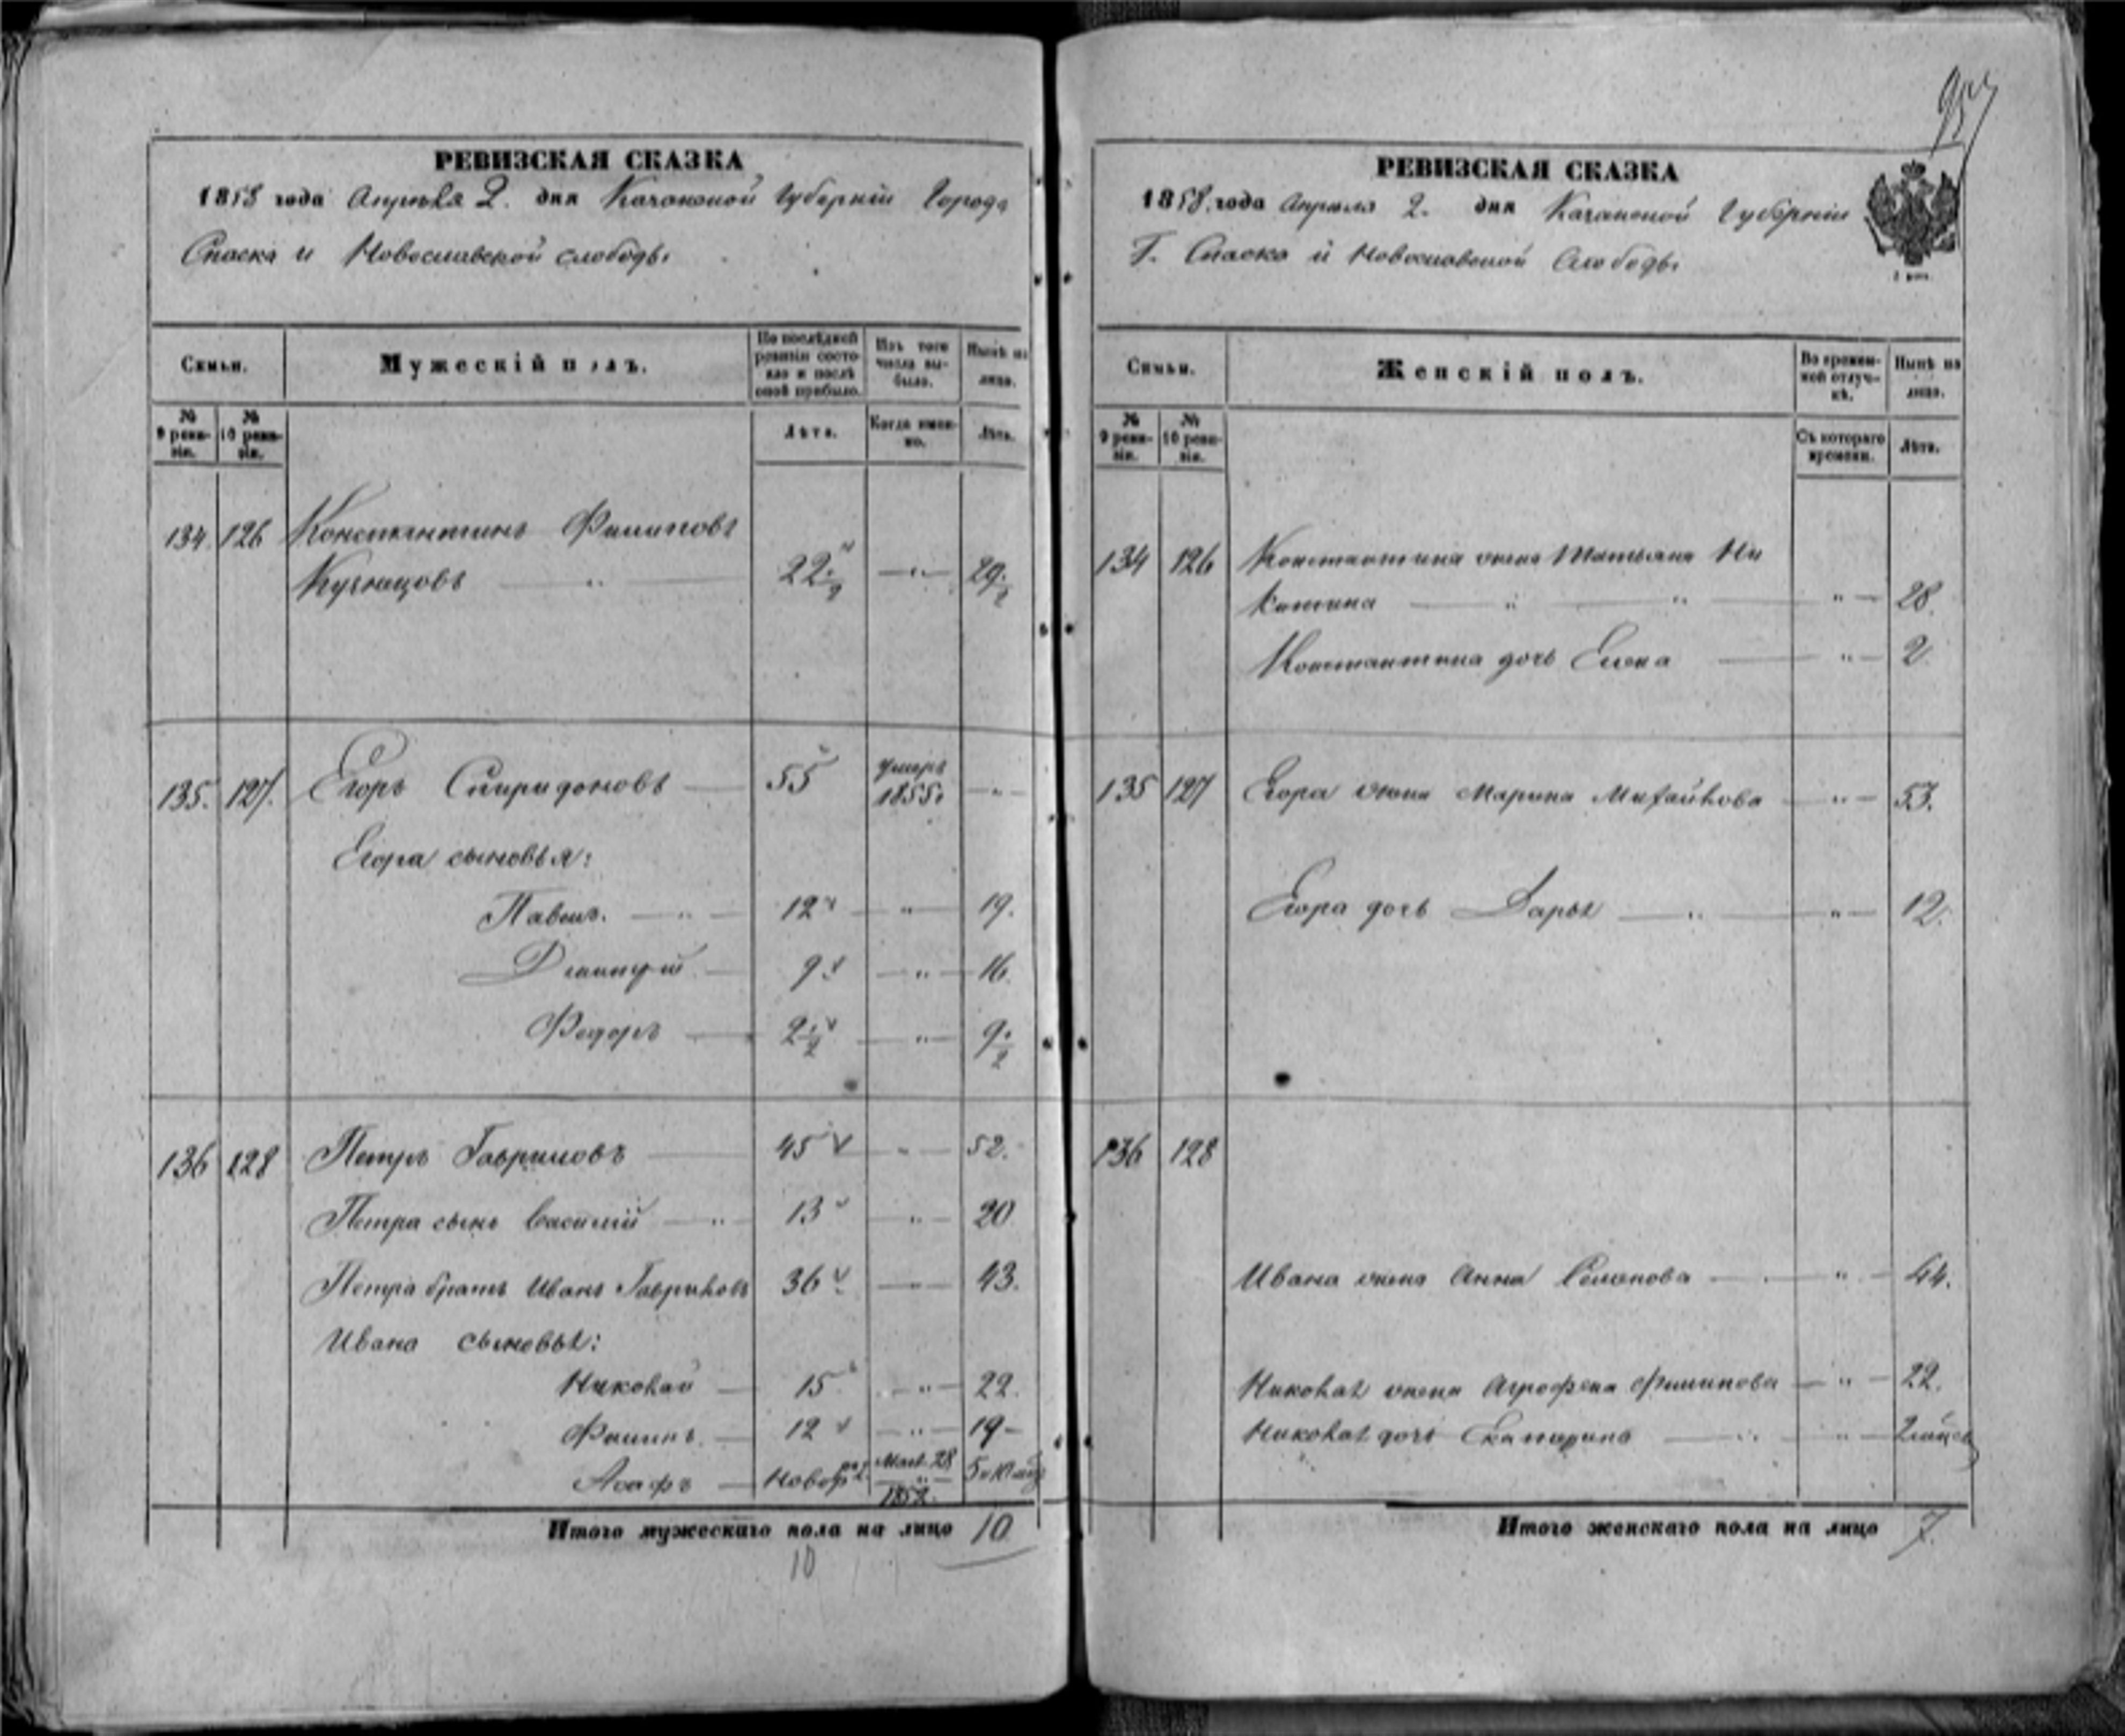 957
РЕВИЗСКАЯ СКАЗКА
1858 года Апреля 2. дня Казанской Губерніи Города
Спаска и Новославской слободы
Семьи.
Мужескій полъ.
По послѣдней ревизіи состояло и послѣ оной прибыло.
Изъ того числа выбыло.
Нынѣ на лицо.
№ 9 ревизіи.
№ 10 ревизіи.
Лѣта.
Когда именно.
Лѣта.
134. 126 Константинъ Филиповъ
Кузнецовъ — " 22 1/2 — " — 29 1/2
135. 127. Егоръ Спиридоновъ — 55 умеръ 1855. — " —
Егора сыновья:
Павелъ. — " — 12 — " — 19.
Дмитрій — 9 — " — 16.
Федоръ — 2 1/2 — " — 9 1/2
136 128 Петръ Гавриловъ — 45 — " — 52.
Петра сынъ Василій — " — 13 — " — 20
Петра братъ Иванъ Гавриловъ 36 — " — 43.
Ивана сыновья:
Николай — 15 — " — 22.
Филипъ. — 12 — " — 19 —
Асафъ — Новорож. 28 185
Итого мужескаго пола на лицо 10
10
РЕВИЗСКАЯ СКАЗКА
1858. года Апреля 2. дня Казанской Губерніи
Г. Спаска и Новославской Слободы
Семьи.
Женскій полъ.
Во временной отлучкѣ.
Нынѣ на лицо.
№ 9 ревизіи.
№ 10 ревизіи.
Съ котораго времени.
Лѣта.
134 126 Константина жена Татьяна Ни
китина — " — " — " — 28.
Константина дочь Елена — " — 2
135 127 Егора жена Марина Михайлова — " — 53.
Егора дочь Дарья — " — " — 12.
136 128
Ивана жена Анна Семенова — " — 44.
Николая жена Агрофена Филипова — " — 22.
Николая дочь Екатерина — " — " — 2 мѣсяц
Итого женскаго пола на лицо 7.